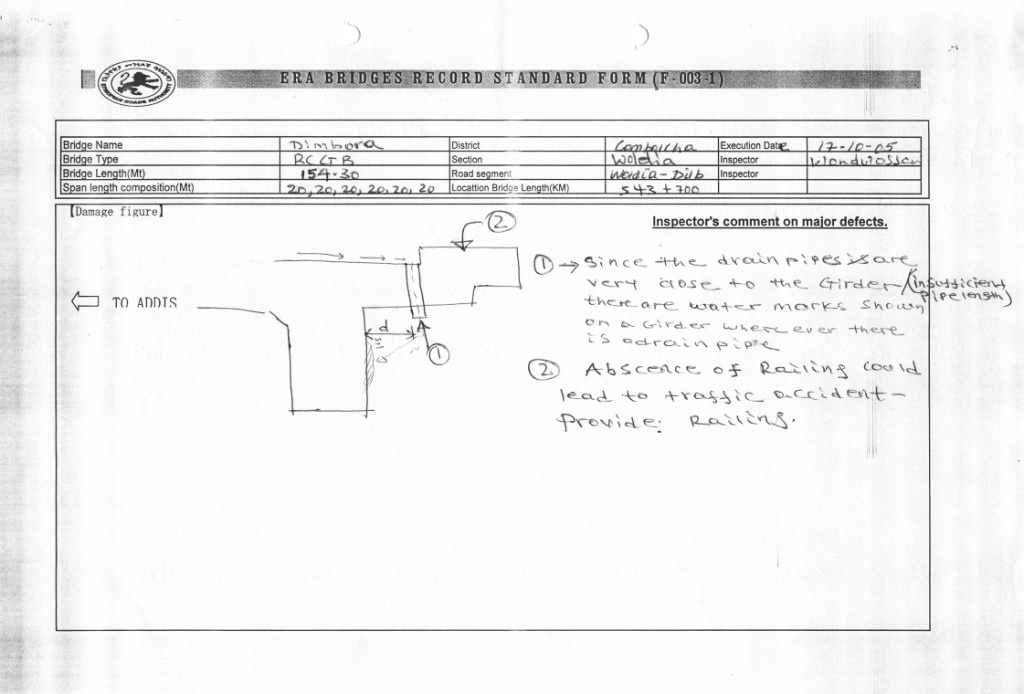 ERA BRIDGES RECORD STANDARD FORM (F-003-1)
Bridge Name Dimbora District Combolcha Execution Date 17-10-05
Bridge Type RCGTB Section Woldia Inspector Wondwossen
Bridge Length(Mt) 154.30 Road segment Woldia - Dilb Inspector
Span length composition(Mt) 20, 20, 20, 20, 20, 20 Locattion Bridge Length(KM) 543 + 700
【Damage figure】
Inspector's comment on major defects.
2
TO ADDIS
d
1
1 → Since the drain pipes is are
very close to the Girder (insufficient
pipe length)
there are water marks shown
on a Girder where ever there
is a drain pipe
2 Abscence of Railing could
lead to traffic accident -
Provide: Railing.